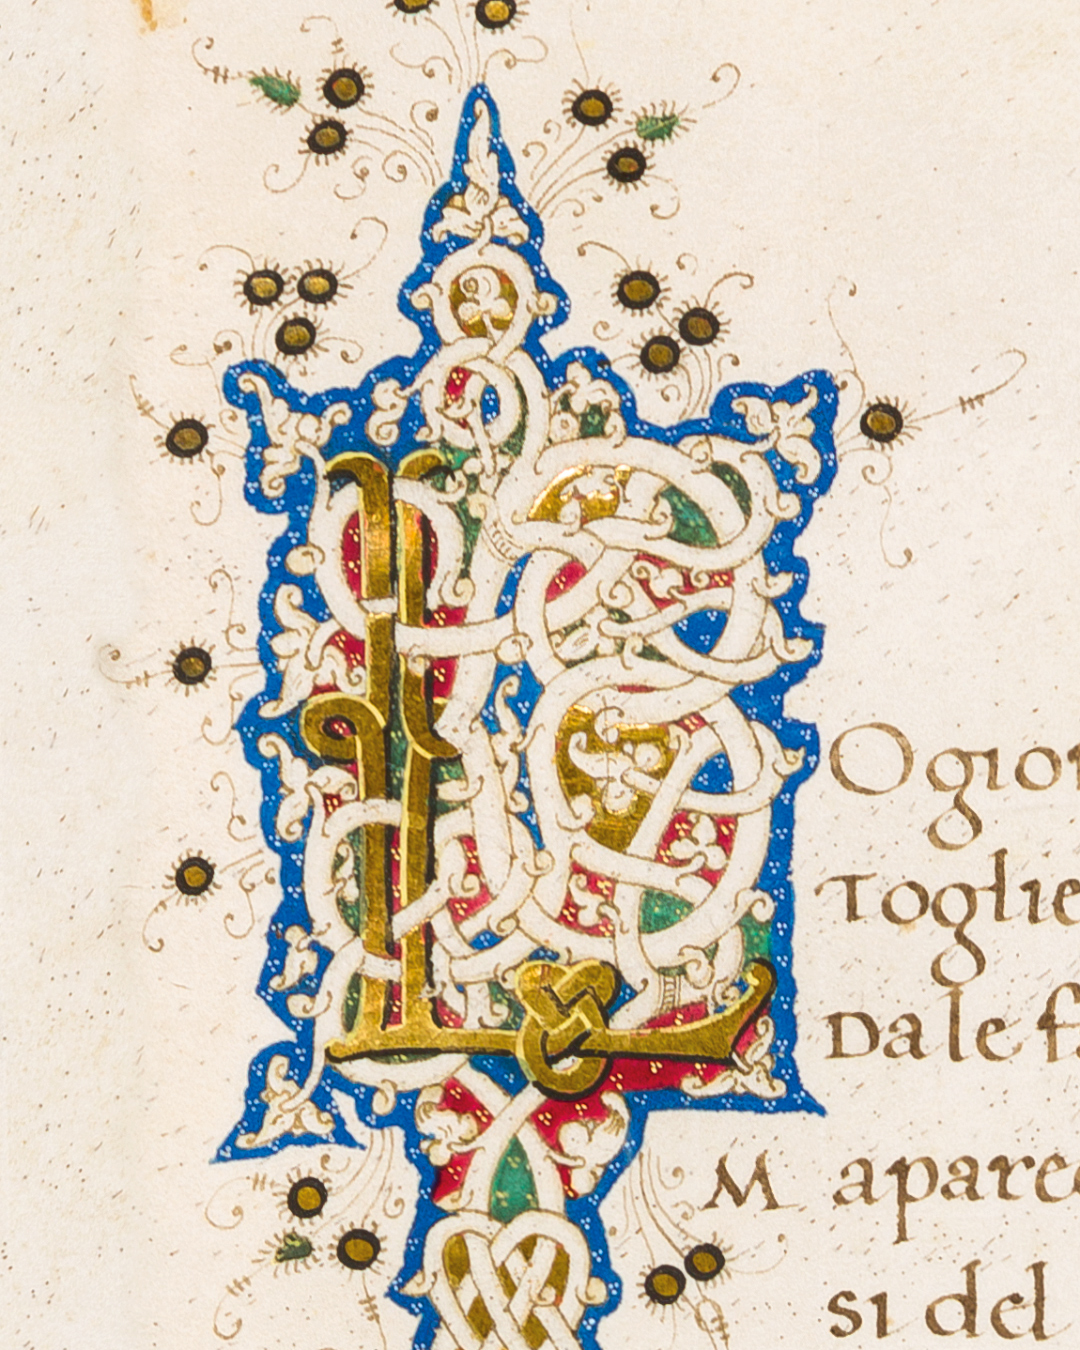 L
Ogior
Toglie
Dale f
M apare
si del